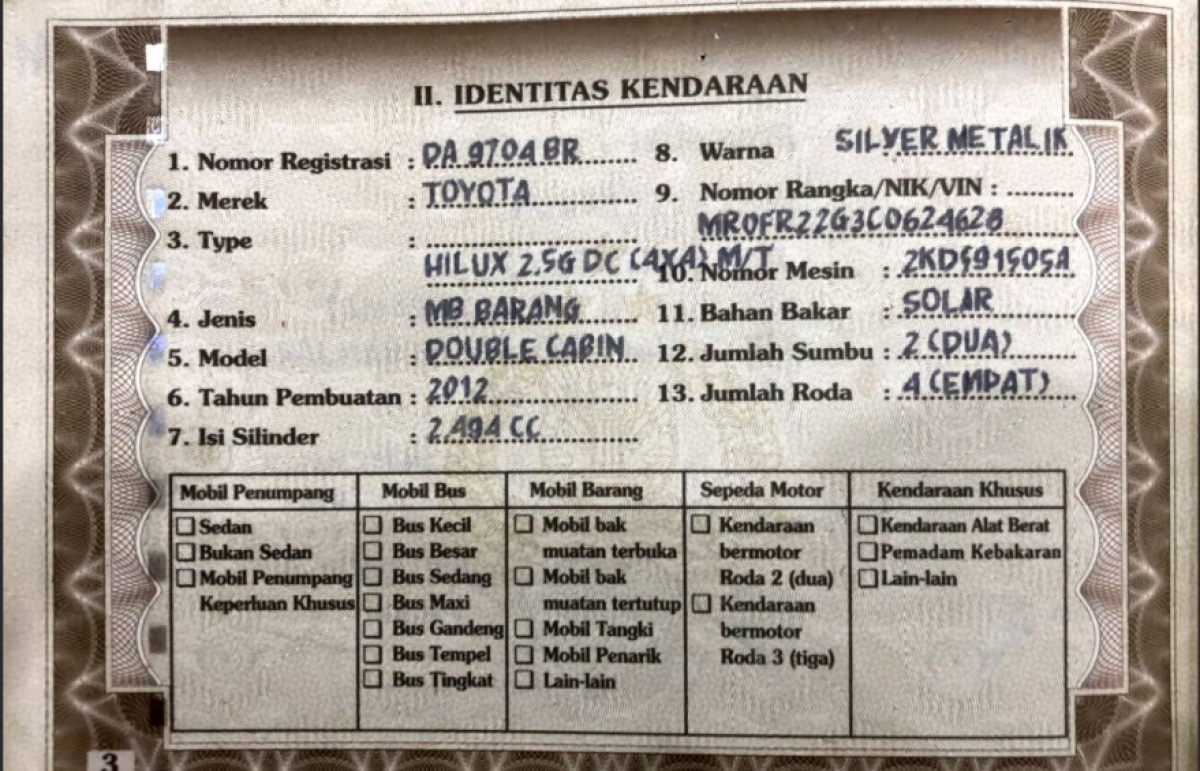 II. IDENTITAS KENDARAAN
1. Nomor Registrasi : DA 9704 BR
2. Merek : TOYOTA
3. Type :
HILUX 2.5G DC (4X4) M/T
4. Jenis : MB BARANG
5. Model : DOUBLE CABIN
6. Tahun Pembuatan : 2012
7. Isi Silinder : 2.494 CC
8. Warna SILVER METALIK
9. Nomor Rangka/NIK/VIN :
MR0FR22G3C0624628
10. Nomor Mesin : 2KD5915054
11. Bahan Bakar : SOLAR
12. Jumlah Sumbu : 2 (DUA)
13. Jumlah Roda : 4 (EMPAT)
Mobil Penumpang
Sedan
Bukan Sedan
Mobil Penumpang
Keperluan Khusus
Mobil Bus
Bus Kecil
Bus Besar
Bus Sedang
Bus Maxi
Bus Gandeng
Bus Tempel
Bus Tingkat
Mobil Barang
Mobil bak
muatan terbuka
Mobil bak
muatan tertutup
Mobil Tangki
Mobil Penarik
Lain-lain
Sepeda Motor
Kendaraan
bermotor
Roda 2 (dua)
Kendaraan
bermotor
Roda 3 (tiga)
Kendaraan Khusus
Kendaraan Alat Berat
Pemadam Kebakaran
Lain-lain
3